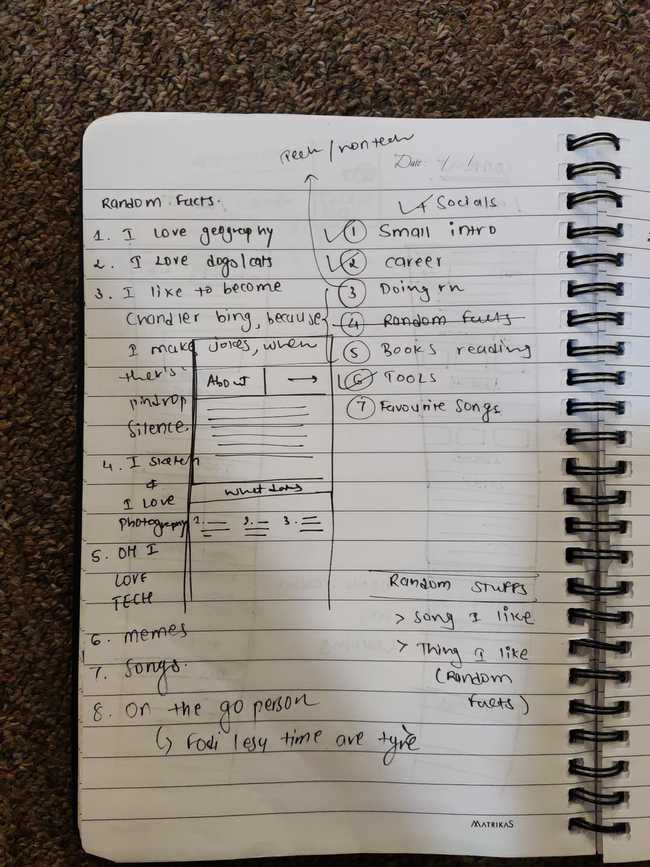 Tech / non tech
Date: / /
Random Facts.
1. I love geography
2. I love dogs/cats
3. I like to become
Chandler bing, because
I make jokes, when
there's
pindrop
silence.
4. I sketch
&
I love
photography
5. OH I
LOVE
TECH
6. memes
7. Songs.
8. On the go person
time are
About →
What
1. 2. 3.
+ Socials
1 Small intro
2 career
3 Doing rn
4 Random facts
5 Books reading
6 TOOLS
7 Favourite Songs
Random STUFFS
> Song I like
> Thing I like
(Random
facts)
MATRIKAS